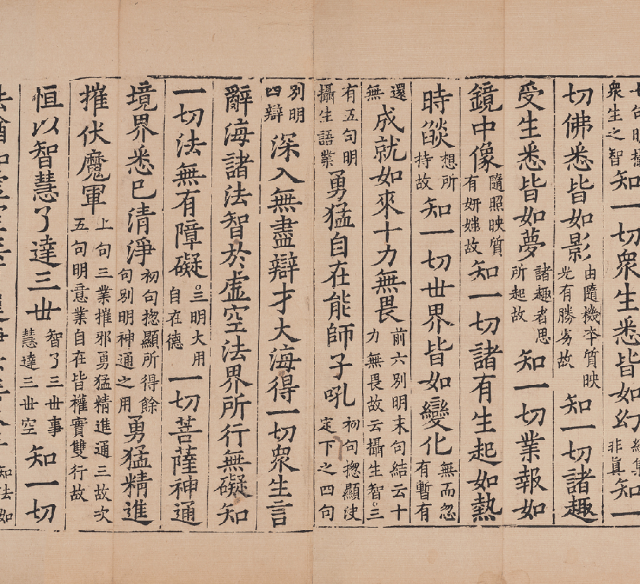 衆生之智 知一切衆生悉皆如幻 非真 知一
切佛悉皆如影 由隨機夲質映光有勝劣故 知一切諸趣
受生悉皆如夢 諸趣者思所起故 知一切業報如
鏡中像 隨照映質有妍媸故 知一切諸有生起如熱
時燄 想所持故 知一切世界皆如變化 無而忽有暫有
還無 成就如來十力無畏 前六別明末句結云十力無畏故云攝生智○三
有五句明攝生語業 勇猛自在能師子吼 初句揔顯決定下之四句
別明四辯 深入無盡辯才大海得一切衆生言
辭海諸法智於虛空法界所行無礙知
一切法無有障礙 ○三明大用自在德 一切菩薩神通
境界悉已清淨 初句揔顯所得餘句別明神通之用 勇猛精進
摧伏魔軍 上句三業摧邪勇猛精進通三故次五句明意業自在皆權實雙行故
恒以智慧了達三世 智了三世事慧達三世空 知一切
知法如